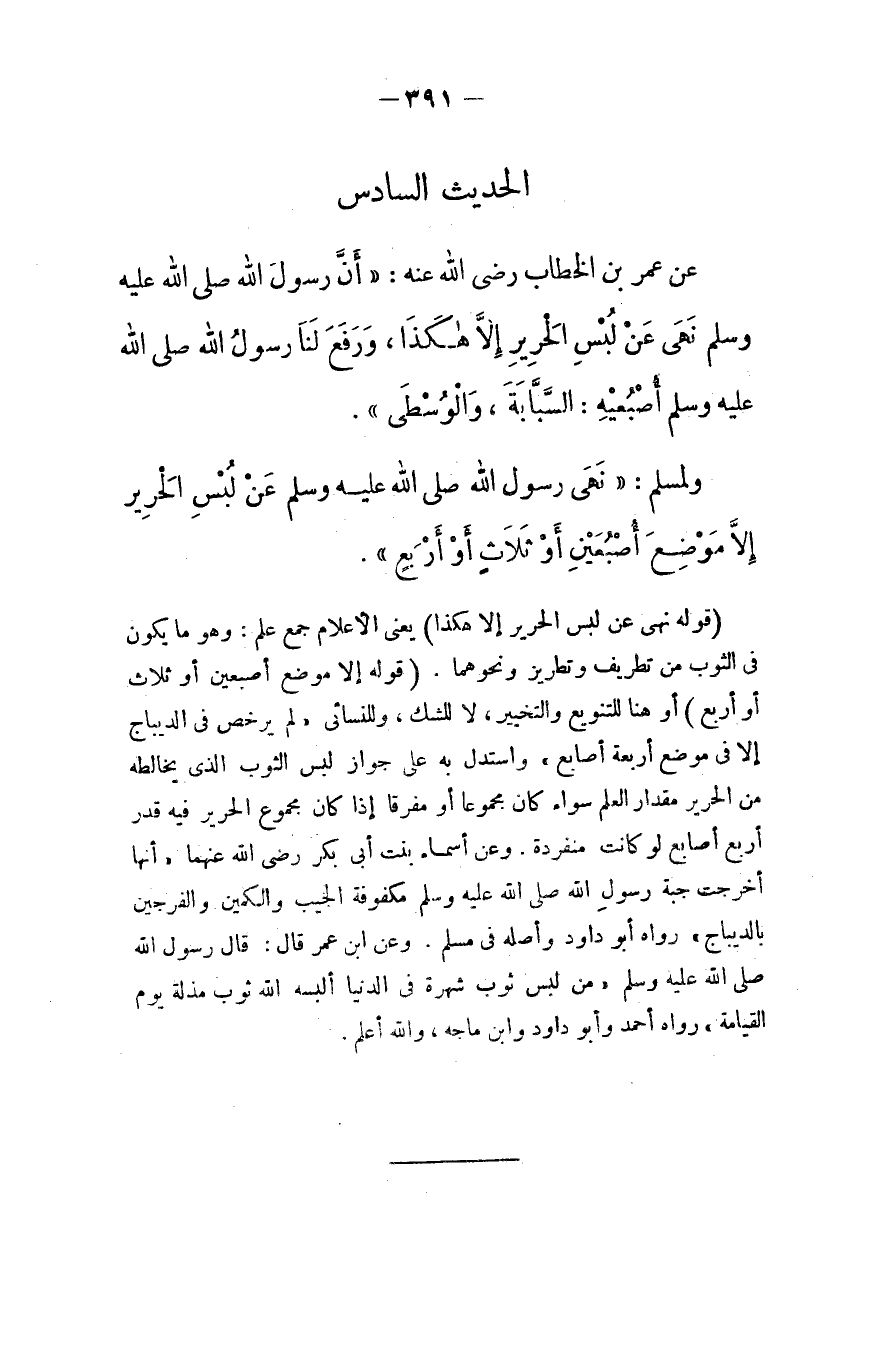 — ٣٩١ —
الحديث السادس
عن عمر بن الخطاب رضى الله عنه : « أَنَّ رسولَ الله صلى الله عليه
وسلم نَهَى عَنْ لُبْسِ الْحَرِيرِ إِلاَّ هٰكَذَا ، وَرَفَعَ لَنَا رسولُ الله صلى الله
عليه وسلم أُصْبُعَيْهِ : السَّبَّابَةَ ، وَالْوُسْطَى » .
ولمسلم : « نَهَى رسول الله صلى الله عليه وسلم عَنْ لُبْسِ الْحَرِير
إِلاَّ مَوْضِعَ أُصْبُعَيْنِ أَوْ ثَلَاثٍ أَوْ أَرْبَعٍ » .
(قوله نهى عن لبس الحرير إلا هكذا) يعنى الأعلام جمع علم : وهو ما يكون
فى الثوب من تطريف وتطريز ونحوهما . (قوله إلا موضع أصبعين أو ثلاث
أو أربع) أو هنا للتنويع والتخيير ، لا للشك ، وللنسائى « لم يرخص فى الديباج
إلا فى موضع أربعة أصابع » واستدل به على جواز لبس الثوب الذى يخالطه
من الحرير مقدار العلم سواء كان مجموعا أو مفرقا إذا كان مجموع الحرير فيه قدر
أربع أصابع لو كانت منفردة . وعن أسماء بنت أبى بكر رضى الله عنهما « أنها
أخرجت جبة رسول الله صلى الله عليه وسلم مكفوفة الجيب والكمين والفرجين
بالديباج » رواه أبو داود وأصله فى مسلم . وعن ابن عمر قال : قال رسول الله
صلى الله عليه وسلم « من لبس ثوب شهرة فى الدنيا ألبسه الله ثوب مذلة يوم
القيامة » رواه أحمد وأبو داود وابن ماجه ، والله أعلم .